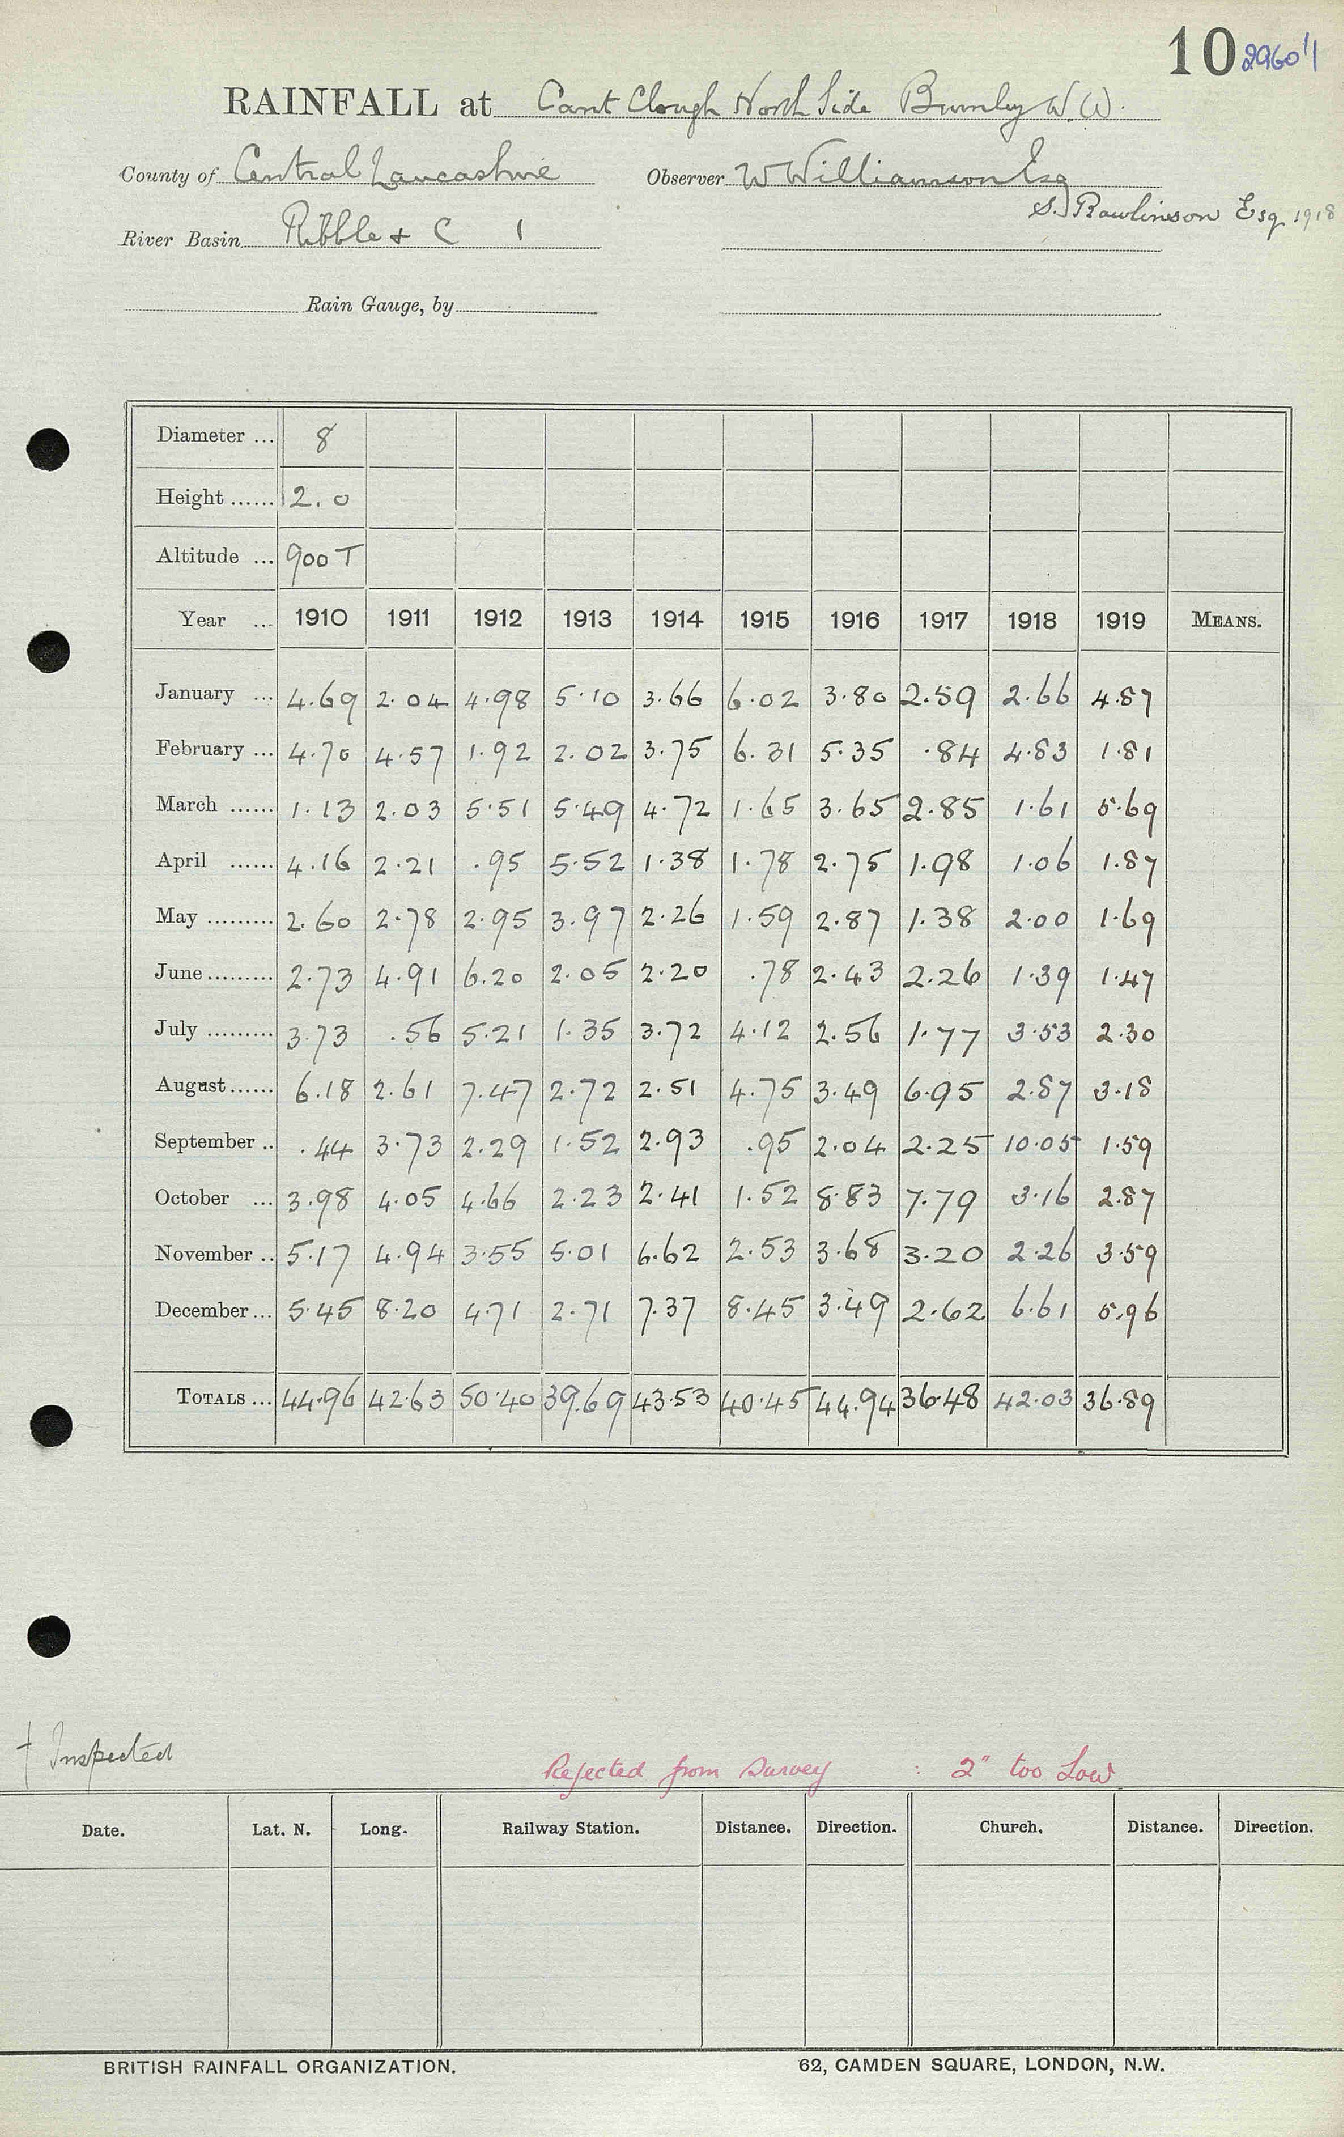 10 29601
RAINFALL at Cant Clough North Side Burnley W.W.
County of Central Lancashire Observer W Williamson Esq
S. Rawlinson Esq 1918
River Basin Ribble + C 1
Rain Gauge, by
Diameter ... 8
Height ...... 2.0
Altitude ... 900 T
Year ... 1910 1911 1912 1913 1914 1915 1916 1917 1918 1919 MEANS.
January ... 4.69 2.04 4.98 5.10 3.66 6.02 3.80 2.59 2.66 4.87
February ... 4.70 4.57 1.92 2.02 3.75 6.31 5.35 .84 4.83 1.81
March ...... 1.13 2.03 5.51 5.49 4.72 1.65 3.65 2.85 1.61 5.69
April ...... 4.16 2.21 .95 5.52 1.38 1.78 2.75 1.98 1.06 1.87
May ......... 2.60 2.78 2.95 3.97 2.26 1.59 2.87 1.38 2.00 1.69
June ......... 2.73 4.91 6.20 2.05 2.20 .78 2.43 2.26 1.39 1.47
July ......... 3.73 .56 5.21 1.35 3.72 4.12 2.56 1.77 3.53 2.30
August ...... 6.18 2.61 7.47 2.72 2.51 4.75 3.49 6.95 2.87 3.18
September .. .44 3.73 2.29 1.52 2.93 .95 2.04 2.25 10.05 1.59
October ... 3.98 4.05 4.66 2.23 2.41 1.52 8.83 7.79 3.16 2.87
November .. 5.17 4.94 3.55 5.01 6.62 2.53 3.68 3.20 2.26 3.59
December ... 5.45 8.20 4.71 2.71 7.37 8.45 3.49 2.62 6.61 5.96
TOTALS ... 44.96 42.63 50.40 39.69 43.53 40.45 44.94 36.48 42.03 36.89
† Inspected
Rejected from survey : 2" too Low
Date. Lat. N. Long. Railway Station. Distance. Direction. Church. Distance. Direction.
BRITISH RAINFALL ORGANIZATION. 62, CAMDEN SQUARE, LONDON, N.W.